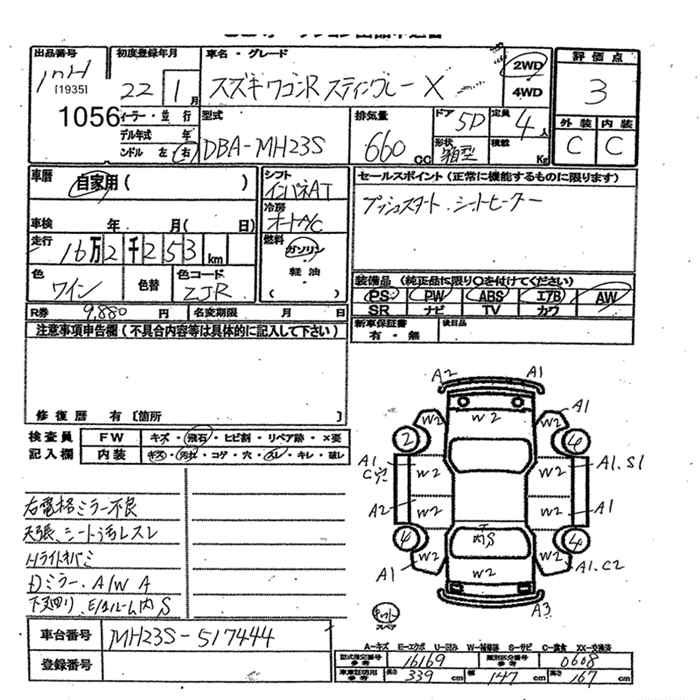 出品番号 初度登録年月 車名・グレード
[1935] 22 1月 スズキ ワゴンR スティングレー X 2WD 4WD
1056
評価点
3
外装 内装
C C
イーラー・並行 型式 排気量 ドア 5D 定員 4人
デル年式 年 DBA-MH23S 660cc 形状 箱型 積載 Kg
ンドル 左 右
車歴 自家用( )
シフト インパネAT
冷房 オートA/C
燃料 ガソリン 軽油 ( )
車検 年 月( 日)
走行 16万2千253km
色 ワイン 色替 色コード ZJR
セールスポイント(正常に機能するものに限ります)
プッシュスタート、シートヒーター
装備品(純正品に限り〇を付けてください)
PS PW ABS エアB AW
SR ナビ TV カワ
新車保証書 有・無 後日品
R券 9,880 円 名変期限 月 日
注意事項申告欄(不具合内容等は具体的に記入して下さい)
修復歴 有[箇所 ]
検査員 FW キズ・飛石・ヒビ割・リペア跡・×要
記入欄 内装 キズ・汚れ・コゲ・穴・スレ・キレ・破レ
右電格ミラー不良
天張、シート汚レスレ
Hライトキバミ
Dミラー、A/W A
下廻り、E/ルーム内 S
車台番号 MH23S-517444
登録番号
A2 A1
W2
W2 A1 W2
2 4
A1 C穴 W2 W2 A1.S1
A2 W2 W2 A1
内S
4 4
W2 W2
A1 W2 A1.C2
A3
スペア
A-キズ E-エクボ U-凹み W-補修跡 S-サビ C-腐食 XX-交換済
型式指定番号 参考 16169 類別区分番号 参考 0608
車車証活用 参考 長さ 339cm 幅 147cm 高さ 167cm